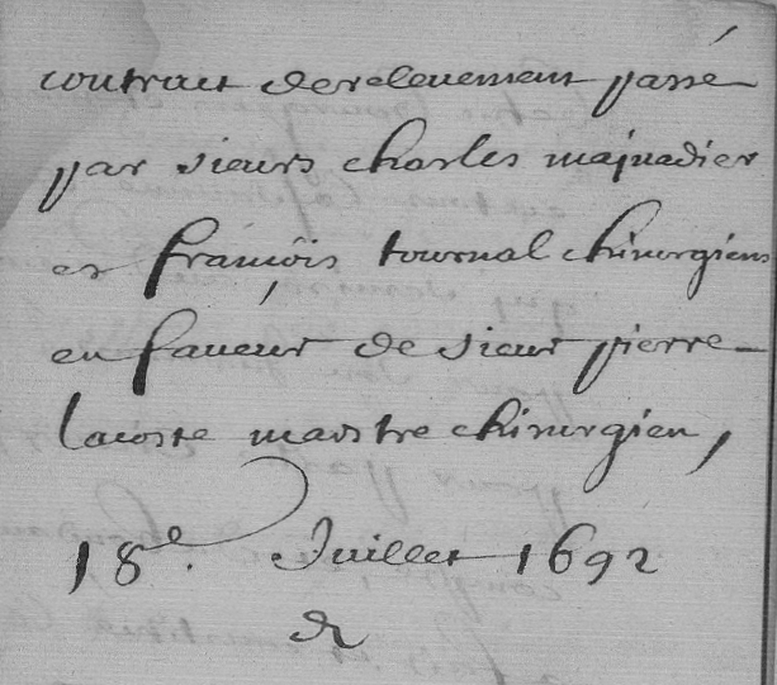 contract de relevement passé
par sieurs charles majnadier
et françois tournal chirurgiens
en faveur de sieur pierre
lacoste maistre chirurgien,
18e. Juillet 1692